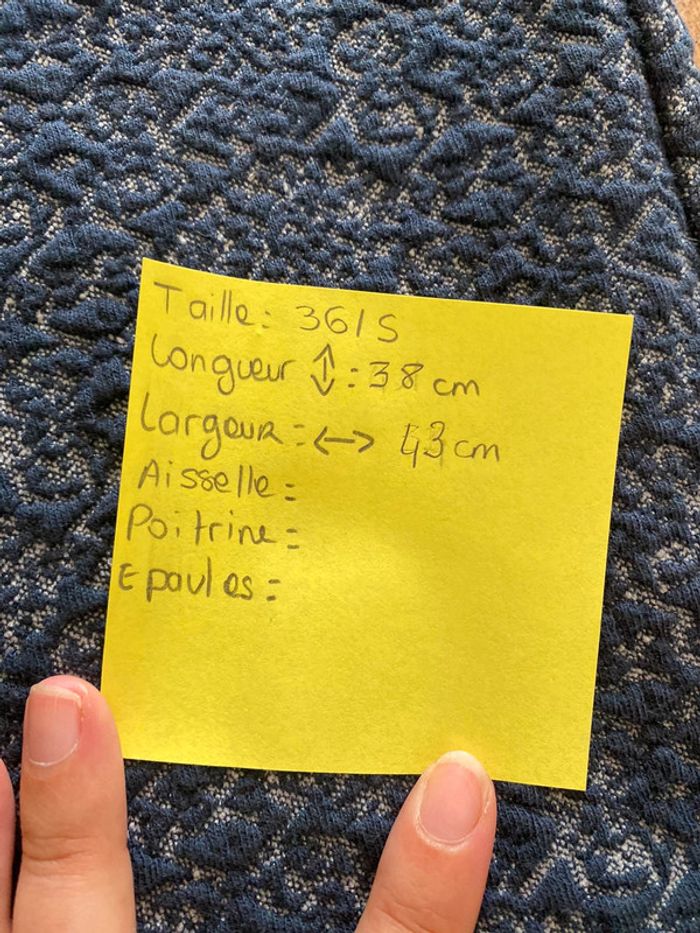 Taille: 36/S
Longueur ↕: 38 cm
Largeur = ↔ 43 cm
Aisselle =
Poitrine =
Epaules =